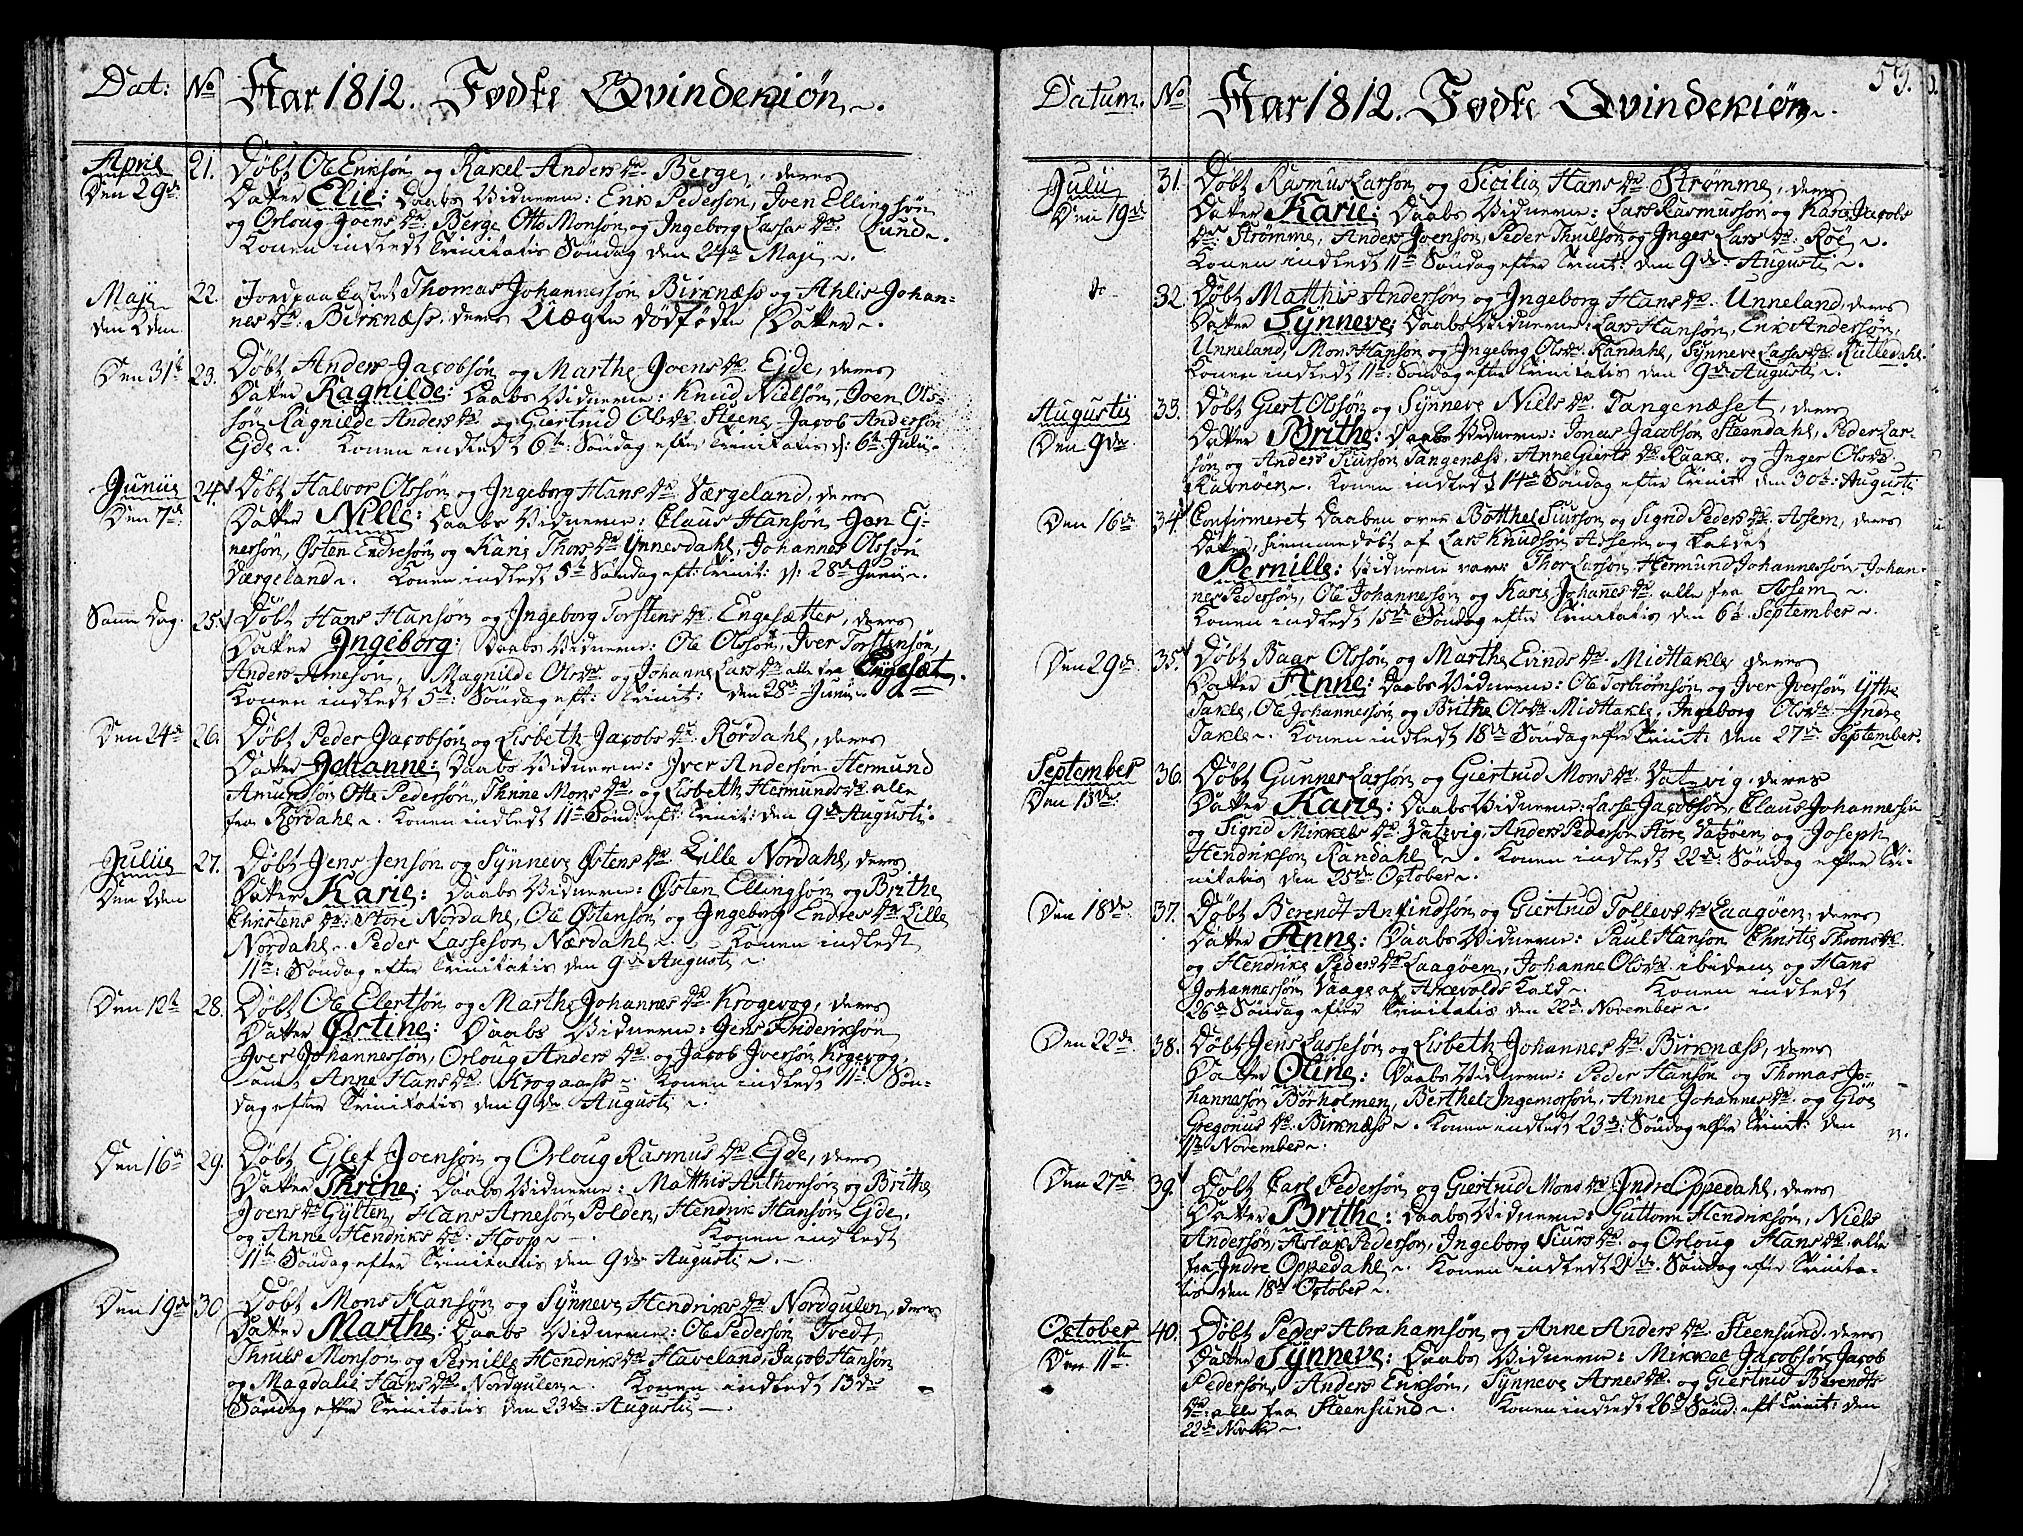 Dat: No Aar 1812. Fødte Qvindekiøn.
April 21. Døbt Ole Eriksøn og Rakel Anders dr. Berge, deres
Den 29de Datter Elie: Daabs Vidnerne: Erik Pedersøn, Joen Ellingsøn
og Orloug Joens dr. Berge Otto Monsøn og Ingeborg Lasses dr. Lund.
Konen indledt Trinitatis Søndag den 24de Maji.
Maji 22. Jordpaakastet Thomas Johannessøn Birknæss og Ahlis Johan-
den 2den nes dr. Birknæss, deres Uægte dødfødte Datter.
Den 31te 23. Døbt Anders Jacobsøn og Marthe Joens dr. Ejde, deres
Datter Ragnilde: Daabs Vidnerne: Knud Nielsøn, Joen Ols-
søn Ragnilde Anders dr. og Giertrud Ols dr. Steene Jacob Andersøn
Ejde. Konen indledt 6te Søndag efter Trinitatis d: 6te Julii.
Junii 24. Døbt Halvor Olssøn og Ingeborg Hans dr. Værgeland, deres
Den 7de Datter Nille: Daabs Vidnerne: Claus Hansøn Jon Ej-
nersøn, Østen Endresøn og Karie Thors dr. Ynnesdahl, Johannes Olssøn
Værgeland. Konen indledt 5te Søndag eft: Trinit: d: 28de Junii.
Samme Dag. 25. Døbt Hans Hansøn og Ingeborg Torstens dr. Engesætter, deres
Datter Ingeborg: Daabs Vidnerne: Ole Olssøn, Iver Torstensøn,
Anders Arnesøn, Magnilde Ols dr. og Johanne Lars dr. alle fra Engesæt.
Konen indledt 5te: Søndag eft: Trinit: den 28de Junii.
Den 24de 26. Døbt Peder Jacobsøn og Lisbeth Jacobs dr. Rørdahl, deres
Datter Johanne: Daabs Vidnerne: Iver Andersøn Hermund
Amundsøn Otte Pedersøn, Thrine Mons dr. og Lisbeth Hermunds dr. alle
fra Rørdahl. Konen indledt 11te Sønd: eft: Trinit: den 9de Augusti.
Julii 27. Døbt Jens Jensøn og Synneve Østens dr. Lille Nordahl, deres
Den 2den Datter Karie: Daabs Vidnerne: Østen Ellingsøn og Brithe
Christens dr: Store Nordahl, Ole Østensøn og Ingeborg Endres dr. Lille
Nordahl Peder Lassesøn Nærdahl. Konen indledt
11te: Søndag efter Trinitatis den 9de Augusti.
Den 12te 28. Døbt Ole Elertsøn og Marthe Johannes dr. Krogevog, deres
Datter Østine: Daabs Vidnerne: Jens Friderikssøn
Iver Johannessøn, Orloug Anders dr. og Jacob Iversøn Krogevog,
samt Anne Hans dr. Krogaass. Konen indledt 11te Søn-
dag efter Trinitatis den 9de Augusti.
Den 16de 29. Døbt Ejlef Joensøn og Orloug Rasmus dr. Ejde, deres
Datter Thrine: Daabs Vidnerne: Matthis Anthonsøn og Brithe
Joens dr. Gylten, Hans Arnesøn Polden, Hendrik Hansøn Ejde.
og Anne Hendriks dr: Hoop. Konen indledt
11te Søndag efter Trinitatis den 9de Augusti.
Den 19de 30 Døbt Mons Hansøn og Synneve Hendriks dr. Nordgulen, deres
Datter Marthe: Daabs Vidnerne: Ole Pedersøn Tvedt
Thruls Monsøn og Pernille Hendriks dr. Haveland, Jacob Hansøn
og Magdalie Hans dr. Nordgulen. Konen indledt 13de
Søndag efter Trinitatis den 23de Augusti.
59.
Datum. No Aar 1812. Fødte Qvindekiøn.
Julii 31. Døbt Rasmus Larsøn og Sicilie Hans dr. Strømme, deres
Den 19de Datter Karie: Daabs Vidnerne: Lars Rasmussøn og Karie Jacobs
dr. Strømme, Anders Joensøn, Peder Truilsøn og Inger Lars dr. Röe.
Konen indledt 11te Søndag efter Trinit: den 9de Augusti.
32. Døbt Matthis Andersøn og Ingeborg Hans dr. Unneland, deres
Datter Synneve: Daabs Vidnerne: Lars Hansøn, Erik Andersøn,
Unneland, Mons Hansøn og Ingeborg Ols dr. Randahl, Synneve Lasses dr. Kittedahl.
Konen indledt 11te: Søndag efter Trinitatis den 9de Augusti.
Augustii 33. Døbt Giert Olssøn og Synneve Niels dr. Tangenæset, deres
Den 9de Datter Brithe: Daabs Vidnerne: Jonas Jacobsøn Steendahl, Peder Lar-
søn og Anders Siursøn Tangenæss, Anne Gierts dr. Raake og Inger Ols dr.
Ravnøen. Konen indledt 14de Søndag efter Trinit: den 30te: Augusti
Den 16de 34. Confirmeret Daaben over Botthel Siursøn og Sigrid Peders dr. Assem, deres
Datter, hiemmedøbt af Lars Knudsøn Assem og kaldet
Pernille: Vidnerne vare: Thor Larsøn, Hermund Johannessøn Johan-
nes Pedersøn, Ole Johannessøn og Karie Johanes dr. alle fra Assem.
Konen indledt 15de Søndag efter Trinitatis den 6te September.
Den 29de 35. Døbt Baar Olssøn og Marthe Evinds dr. Midttakle deres
Datter Anne: Daabs Vidnerne: Ole Torbiørnsøn og Iver Iversøn Yttre
Takle, Ole Johannessøn og Brithe Ols dr. Midttakle, Ingeborg Ols dr. Indre
Takle. Konen indledt 18de Søndag efter Trinit: den 27de September.
September 36. Døbt Gunner Larsøn og Giertrud Mons dr. Vatzvig, deres
Den 13de Datter Karie: Daabs Vidnerne: Lasse Jacobsøn, Claus Johannessøn
og Sigrid Mikkels dr. Vatzvig, Anders Pedersøn Store Vatzøen og Joseph
Hendriksøn Randahl. Konen indledt 22de: Søndag efter Tri-
nitatis den 25de October.
Den 18de 37. Døbt Berendt Anfindsøn og Giertrud Tollevs dr. Laagøen, deres
Datter Anne: Daabs Vidnerne: Paul Hansøn Christie Throns dr.
og Hendrike Peders dr. Laagøen, Johanne Ols dr. ibidem og Hans
Johannessøn Vaage af Askevolds Kald. Konen indledt
26de Søndag efter Trinitatis den 22de November.
Den 22de 38. Døbt Jens Lassesøn og Lisbeth Johannes dr. Birknæss, deres
Datter Oline: Daabs Vidnerne: Peder Hansøn og Thomas Jo-
hannessøn Børholmen, Berthel Ingemorsøn, Anne Johannes dr. og Giøe
Gregorius dr. Birknæss. Konen indledt 23de: Søndag efter Trinit: den
11te November.
Den 27de 39. Døbt Carl Pedersøn og Giertrud Mons dr. Indre Oppedahl, deres
Datter Brithe: Daabs Vidnerne: Guttorm Hendriksøn, Niels
Andersøn, Aslak Pedersøn, Ingeborg Siurs dr. og Orloug Hans dr. alle
fra Indre Oppedahl. Konen indledt 21de Søndag efter Trinita-
tis den 18de October.
October 40. Døbt Peder Abrahamsøn og Anne Anders dr. Steensund, deres
Den 11te Datter Synneve: Daabs Vidnerne: Mikkel Jacobsøn, Jacob
Pedersøn, Anders Eriksøn, Synneve Arnes dr. og Giertrud Berendts
dr: alle fra Steensund. Konen indledt 26de Sønd: eft Trinit: den
22de Novbr.